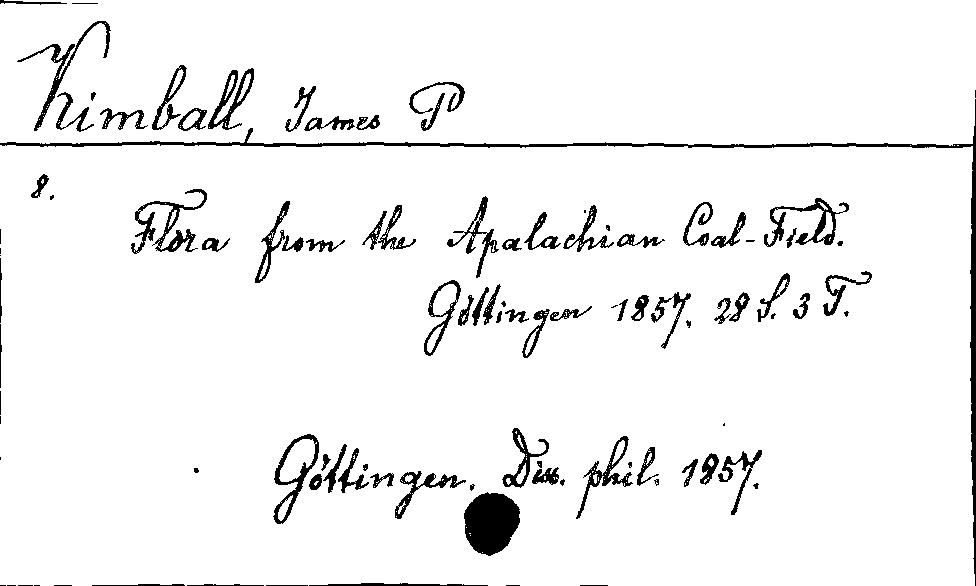 Kimball, James P
8.
Flora from the Apalachian Coal-Field.
Göttingen 1857. 28 S. 3 T.
Göttingen. Diss. phil. 1857.